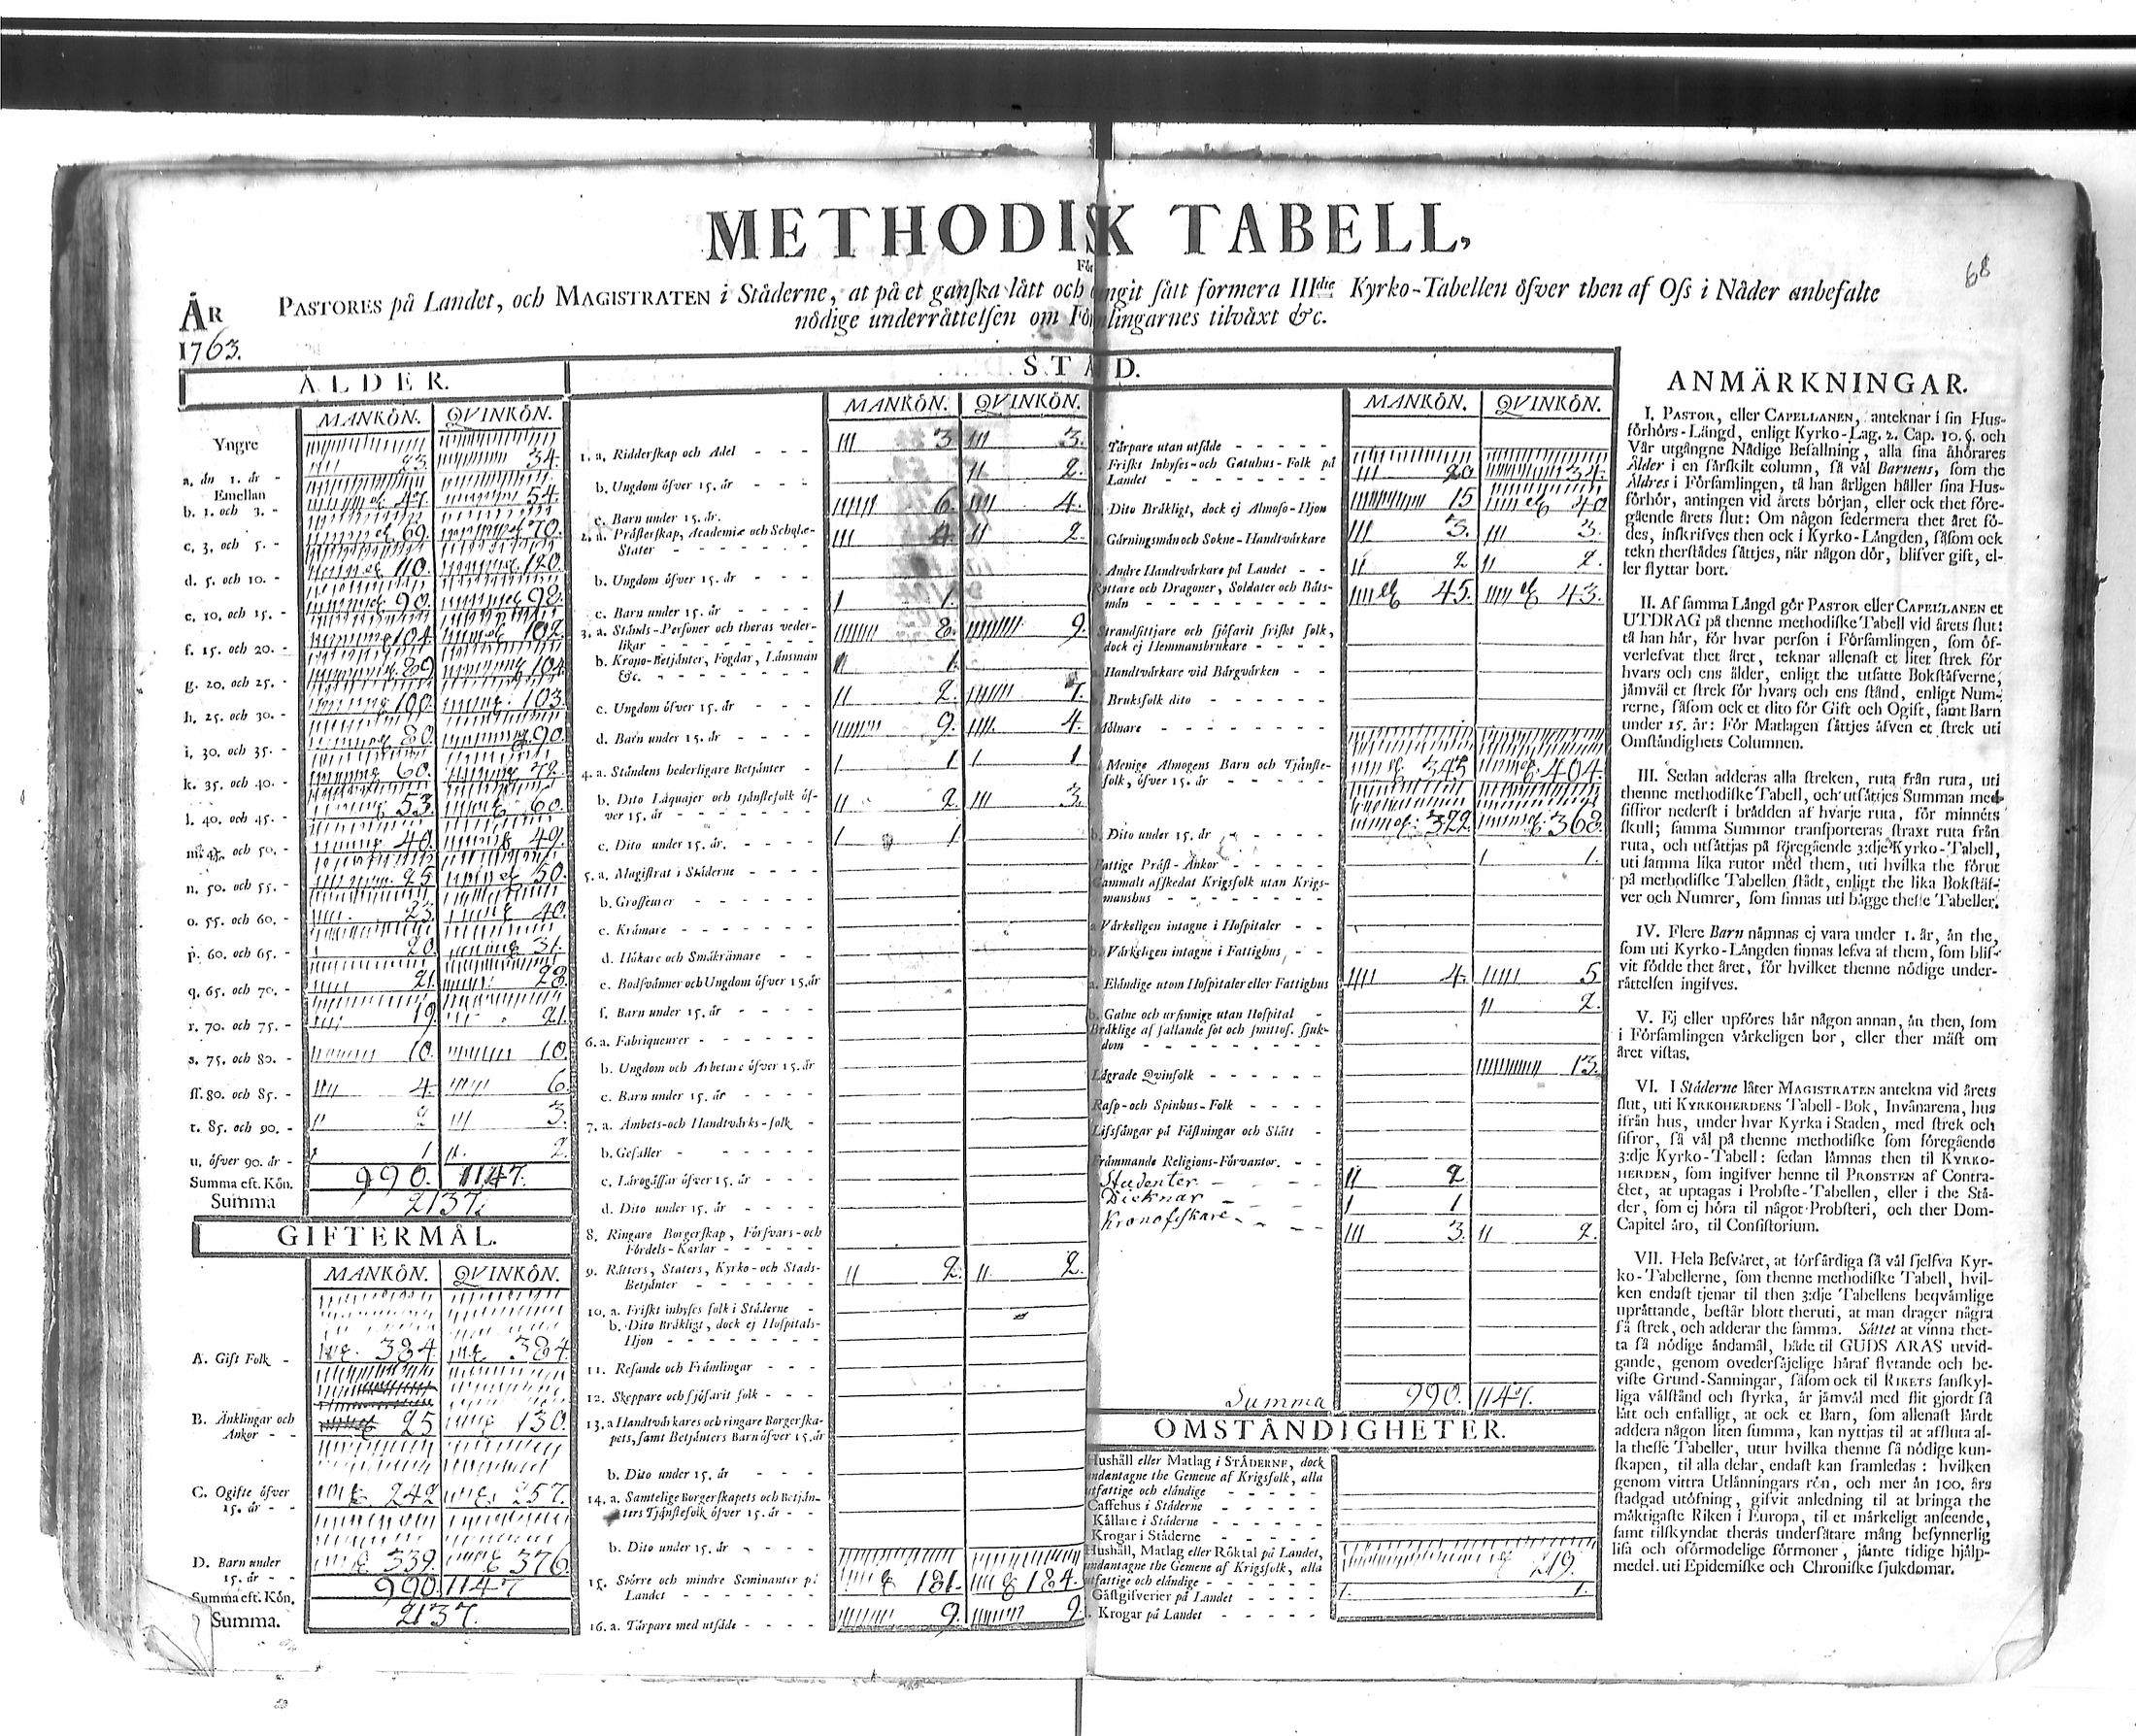 METHODISK TABELL,
För
PASTORES på Landet, och MAGISTRATEN i Städerne, at på et ganska lätt och ringit sätt formera IIIdie Kyrko-Tabellen öfver then af Oss i Nåder anbefalte
nödige underrättelsen om Församlingarnes tilväxt &c.
68
ÅR
1763.
ÅLDER.
MANKÖN. QVINKÖN.
Yngre
a. än 1. år - 83. 34.
Emellan
b. 1. och 3. - 47. 54.
c. 3. och 5. - 69. 70.
d. 5. och 10. - 110. 120.
e. 10. och 15. - 90. 98.
f. 15. och 20. - 104. 102.
g. 20. och 25. - 89. 104.
h. 25. och 30. - 100. 103.
i. 30. och 35. - 80. 90.
k. 35. och 40. - 60. 72.
l. 40. och 45. - 53. 60.
m. 45. och 50. - 40. 49.
n. 50. och 55. - 25. 50.
o. 55. och 60. - 23. 40.
p. 60. och 65. - 20. 31.
q. 65. och 70. - 21. 28.
r. 70. och 75. - 19. 21.
s. 75. och 80. - 10. 10.
ss. 80. och 85. - 4. 6.
t. 85. och 90. - 2 3.
u. öfver 90. år - 1 2.
Summa eft. Kön. 990. 1147.
Summa 2137.
GIFTERMÅL.
MANKÖN. QVINKÖN.
A. Gift Folk - 384. 384.
B. Änklingar och
Änkor - - 25 130.
C. Ogifte öfver
15. år - - 242 257.
D. Barn under
15. år - - 339. 376
Summa eft. Kön. 990. 1147
Summa. 2137.
STÅD.
MANKÖN. QVINKÖN.
1. a. Ridderskap och Adel - - - 3 3.
b. Ungdom öfver 15. år - - - 2.
c. Barn under 15. år. 6. 4.
2. a. Prästerskap, Academiæ och Scholæ-
Stater - - - - - - 4 2.
b. Ungdom öfver 15. år - - -
c. Barn under 15. år - - - - 1.
3. a. Stånds-Personer och theras veder-
likar - - - - - - - 8. 9.
b. Krono-Betjänter, Fogdar, Länsmän
&c. - - - - - - - 1.
c. Ungdom öfver 15. år - - - 2. 7.
d. Barn under 15. år - - - - 9. 4.
4. a. Ståndens hederligare Betjänter - 1 1
b. Dito Laquajer och tjänstefolk öf-
ver 15. år - - - - - - 2. 3
c. Dito under 15. år. - - - - 1
5. a. Magistrat i Städerne - - - -
b. Grosseurer - - - - - -
c. Krämare - - - - - - -
d. Hökare och Småkrämare - -
e. Bodsvänner och Ungdom öfver 15. år
f. Barn under 15. år - - - -
6. a. Fabriqueurer - - - - - -
b. Ungdom och Arbetare öfver 15. år
c. Barn under 15. år - - - -
7. a. Ämbets-och Handtvärks-folk -
b. Gesäller - - - - - - -
c. Lärogässar öfver 15. år - - -
d. Dito under 15. år - - - -
8. Ringare Borgerskap, Försvars-och
Fördels-Karlar - - - - -
9. Rätters, Staters, Kyrko-och Stads-
Betjänter - - - - - - 2. 2.
10. a. Friskt inhyses folk i Städerne -
b. Dito Bräkligt, dock ej Hospitals-
Hjon - - - - - - - -
11. Resande och Främlingar - - -
12. Skeppare och sjöfarit folk - - -
13. a Handtvärkares och ringare Borgerska-
pets, samt Betjänters Barn öfver 15. år
b. Dito under 15. år - - -
14. a. Samtelige Borgerskapets och Betjän-
ters Tjänstefolk öfver 15. år - -
b. Dito under 15. år - - - -
15. Större och mindre Seminanter på
Landet - - - - - - - 181. 184.
16. a. Torpare med utsäde - - - - 9. 9.
MANKÖN. QVINKÖN.
Torpare utan utsäde - - - - -
Friskt Inhyses-och Gatuhus-Folk på
Landet - - - - - - - - 20 34.
Dito Bräkligt, dock ej Almoso-Hjon 15 40
Gärningsmän och Sokne-Handtvärkare 3. 3.
Andre Handtvärkare på Landet - - 2 2.
Ryttare och Dragoner, Soldater och Båts-
män - - - - - - - - 45. 43.
Strandsittjare och sjöfarit friskt folk,
dock ej Hemmansbrukare - - - -
Handtvärkare vid Bärgvärken - -
Bruksfolk dito - - - - - -
Mölnare - - - - - - - -
Menige Almogens Barn och Tjänste-
folk, öfver 15. år - - - - - 345 404.
b. Dito under 15. år - - - - - 372. 368.
Fattige Präst-Änkor - - - - - 1.
Gammalt afskedat Krigsfolk utan Krigs-
manshus - - - - - - - -
a. Värkeligen intagne i Hospitaler - -
b. Värkeligen intagne i Fattighus, - -
a. Eländige utom Hospitaler eller Fattighus 4. 5
b. Galne och ursinnige utan Hospital - 2.
Bräklige af fallande sot och smittos. sjuk-
dom - - - - - - - - -
Lägrade Qvinfolk - - - - - - 13.
Rasp-och Spinhus-Folk - - - -
Lifsfångar på Fästningar och Slått -
Främmande Religions-Förvantor. - -
Studenter - - - 2
Dieknar - - - 1
Kronofiskare - - - 3. 2.
Summa 990. 1147.
OMSTÄNDIGHETER.
Hushåll eller Matlag i STÄDERNE, dock
undantagne the Gemene af Krigsfolk, alla
utfattige och eländige - - - - -
Caffehus i Städerne - - - - -
Källare i Städerne - - - - - -
Krogar i Städerne - - - - -
Hushåll, Matlag eller Röktal på Landet,
undantagne the Gemene af Krigsfolk, alla
utfattige och eländige - - - - - - 219.
Gästgifverier på Landet - - - - 1.
Krogar på Landet - - - - -
ANMÄRKNINGAR.
I. PASTOR, eller CAPELLANEN, anteknar i sin Hus-
förhörs-Längd, enligt Kyrko-Lag. 2. Cap. 10. §. och
Vår utgångne Nådige Befallning, alla sina åhörares
Ålder i en särskilt column, så väl Barnens, som the
Äldres i Församlingen, tå han årligen håller sina Hus-
förhör, antingen vid årets början, eller ock thet före-
gående årets slut: Om någon sedermera thet året fö-
des, inskrifves then ock i Kyrko-Längden, såsom ock
tekn therstädes sättjes, när någon dör, blifver gift, el-
ler flyttar bort.
II. Af samma Längd gör PASTOR eller CAPELLANEN et
UTDRAG på thenne methodiske Tabell vid årets slut:
tå han här, för hvar person i Församlingen, som öf-
verlefvat thet året, teknar allenast et litet strek för
hvars och ens ålder, enligt the utsatte Bokstäfverne,
jämväl et strek för hvars och ens stånd, enligt Num-
rerne, såsom ock et dito för Gift och Ogift, samt Barn
under 15. år: För Matlagen sättjes äfven et strek uti
Omständighets Columnen.
III. Sedan adderas alla streken, ruta från ruta, uti
thenne methodiske Tabell, och utsättjes Summan med
siffror nederst i brädden af hvarje ruta, för minnets
skull; samma Summor transporteras straxt ruta från
ruta, och utsättjas på föregående 3:dje Kyrko-Tabell,
uti samma lika rutor med them, uti hvilka the förut
på methodiske Tabellen städt, enligt the lika Bokstäf-
ver och Numrer, som finnas uti bägge thesse Tabeller.
IV. Flere Barn nämnas ej vara under 1. år, än the,
som uti Kyrko-Längden finnas lefva af them, som blif-
vit födde thet året, för hvilket thenne nödige under-
rättelsen ingifves.
V. Ej eller upföres här någon annan, än then, som
i Församlingen värkeligen bor, eller ther mäst om
året vistas.
VI. I Städerne låter MAGISTRATEN antekna vid årets
slut, uti KYRKOHERDENS Tabell-Bok, Invånarena, hus
ifrån hus, under hvar Kyrka i Staden, med strek och
sifror, så väl på thenne methodiske som föregående
3:dje Kyrko-Tabell: sedan lämnas then til KYRKO-
HERDEN, som ingifver henne til PROBSTEN af Contra-
ctet, at uptagas i Probste-Tabellen, eller i the Stä-
der, som ej höra til något Probsteri, och ther Dom-
Capitel äro, til Consistorium.
VII. Hela Besväret, at förfärdiga så väl sjelfva Kyr-
ko-Tabellerne, som thenne methodiske Tabell, hvil-
ken endast tjenar til then 3:dje Tabellens beqvämlige
uprättande, består blott theruti, at man drager några
få strek, och adderar the samma. Sättet at vinna thet-
ta så nödige ändamål, både til GUDS ÄRAS utvid-
gande, genom ovedersäjelige häraf flytande och be-
viste Grund-Sanningar, såsom ock til RIKETS sanskyl-
liga välstånd och styrka, är jämväl med flit gjordt så
lätt och enfalligt, at ock et Barn, som allenast lärdt
addera någon liten summa, kan nyttjas til at afsluta al-
la thesse Tabeller, utur hvilka thenne så nödige kun-
skapen, til alla delar, endast kan framledas: hvilken
genom vittra Utlänningars rön, och mer än 100. års
stadgad utöfning, gifvit anledning til at bringa the
mäktigaste Riken i Europa, til et märkeligt anseende,
samt tilskyndat theras undersåtare mång besynnerlig
lisa och oförmodelige förmoner, jämte tidige hjälp-
medel uti Epidemiske och Chroniske sjukdomar.